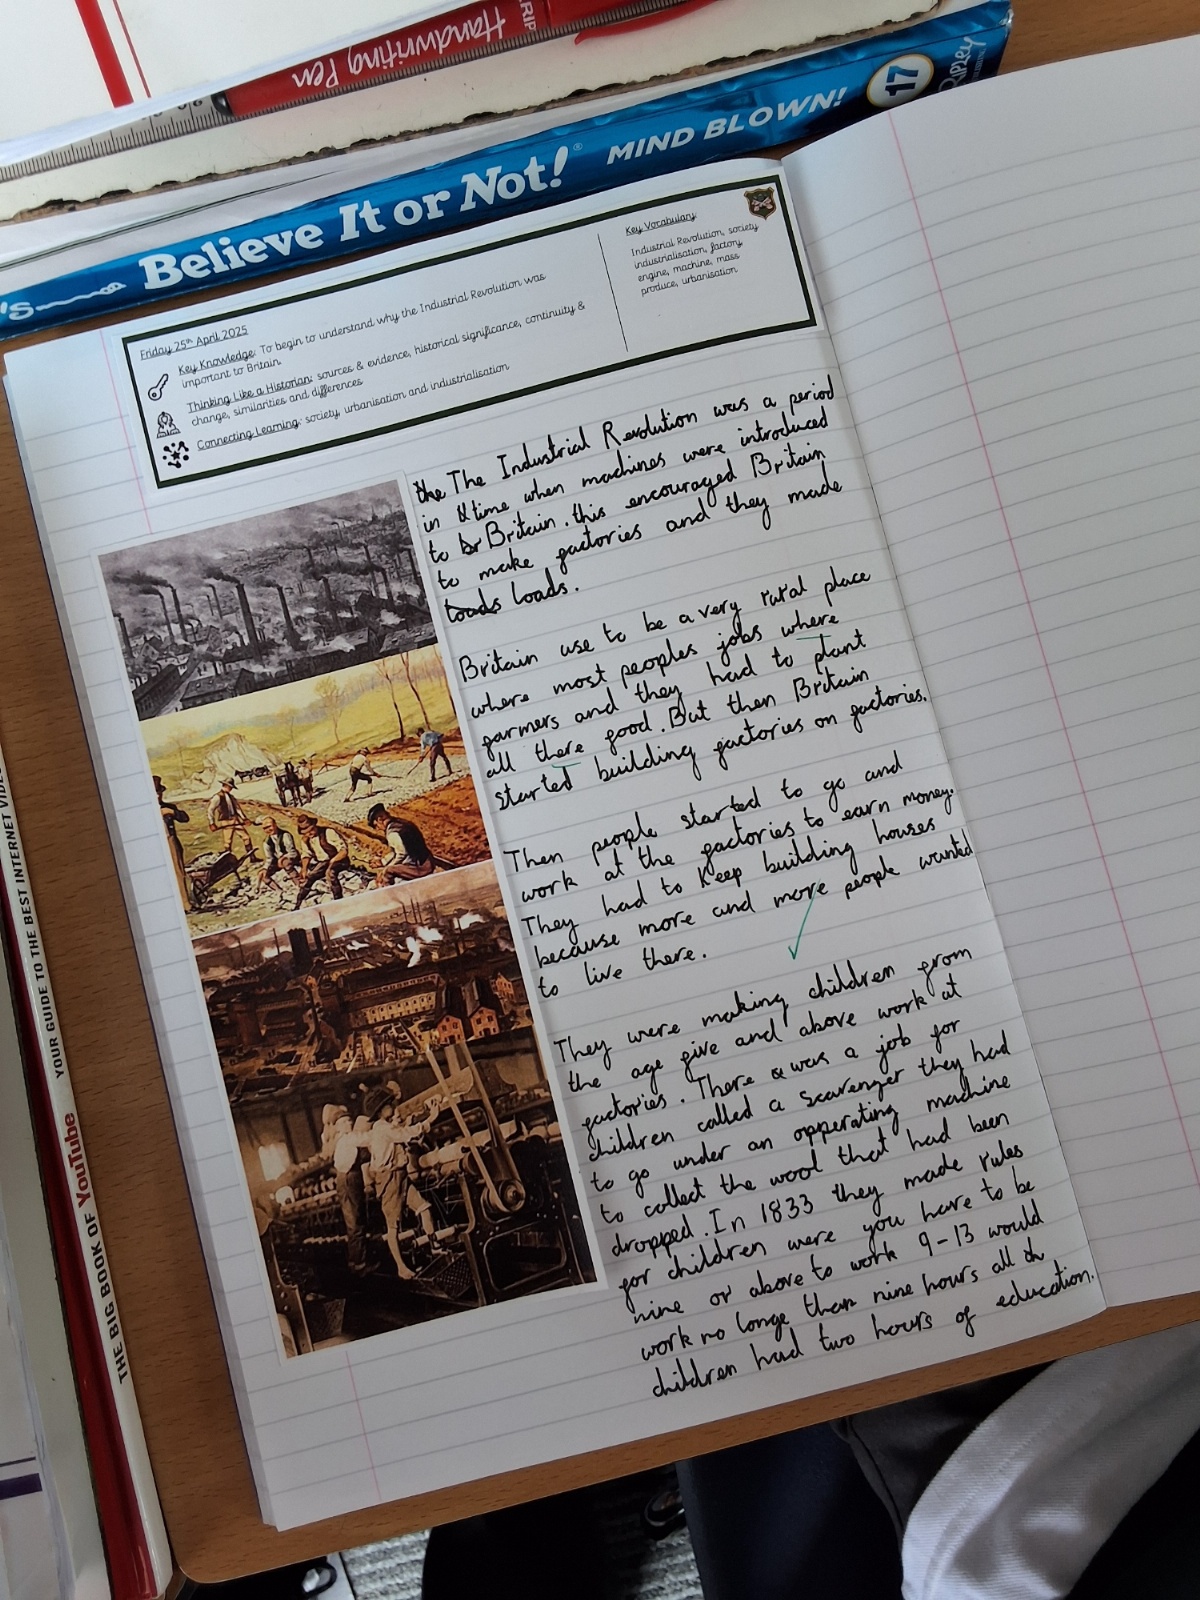 Handwriting Pen
GRIP
Believe It or Not!®
MIND BLOWN!
17
RIPLEY
Friday 25th April 2025
Key Knowledge: To begin to understand why the Industrial Revolution was
important to Britain
Thinking Like a Historian: sources & evidence, historical significance, continuity &
change, similarities and differences
Connecting Learning: society urbanisation and industrialisation
Key Vocabulary:
Industrial Revolution, society
industrialisation, factory
engine, machine, mass
produce, urbanisation
the The Industrial Revolution was a period
in time when machines were introduced
to br Britain. this encouraged Britain
to make factories and they made
loads loads.
Britain use to be a very rural place
where most peoples jobs where
farmers and they had to plant
all there food. But then Britain
started building factories on factories.
Then people started to go and
work at the factories to earn money.
They had to keep building houses
because more and more people wanted
to live there.
They were making children from
the age five and above work at
factories. There was a job for
children called a scavenger they had
to go under an opperating machine
to collect the wool that had been
dropped. In 1833 they made rules
for children were you have to be
nine or above to work 9-13 would
work no longe than nine hours all
children had two hours of education.
YOUR GUIDE TO THE BEST INTERNET
THE BIG BOOK OF YouTube